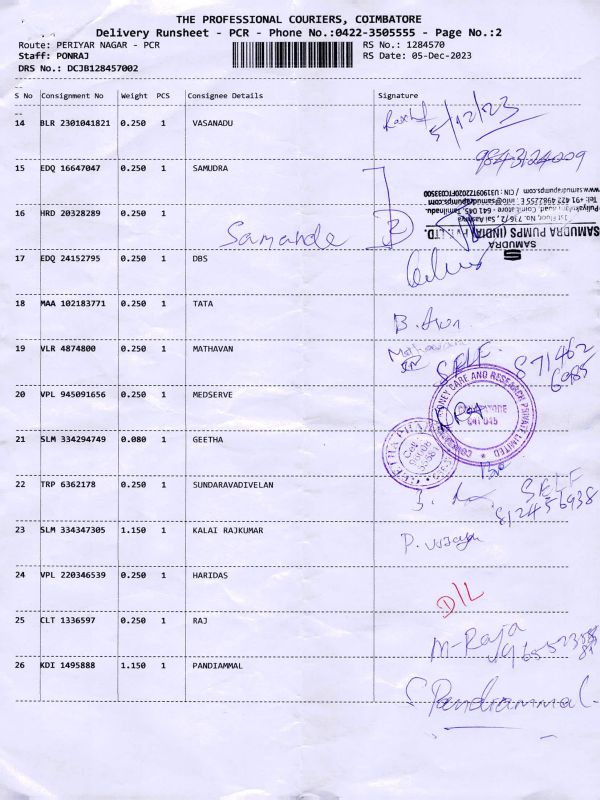 THE PROFESSIONAL COURIERS, COIMBATORE
Delivery Runsheet - PCR - Phone No.:0422-3505555 - Page No.:2
Route: PERIYAR NAGAR - PCR RS No.: 1284570
Staff: PONRAJ RS Date: 05-Dec-2023
DRS No.: DCJB128457002
S No Consignment No Weight PCS Consignee Details Signature
14 BLR 2301041821 0.250 1 VASANADU 5/12/23
9843124009
15 EDQ 16647047 0.250 1 SAMUDRA
16 HRD 20328289 0.250 1 Samande
SAMUDRA
SAMUDRA PUMPS (INDIA) PVT. LTD.
1st Floor, No. 736/2, Sai Aashraya
Tel: +91 422 4982255 E : info@samudrapumps.com
www.samudrapumps.com
17 EDQ 24152795 0.250 1 DBS
18 MAA 102183771 0.250 1 TATA B. Arun
19 VLR 4874800 0.250 1 MATHAVAN SELF 871462
6985
20 VPL 945091656 0.250 1 MEDSERVE
KIDNEY CARE AND RESEARCH PRIVATE LIMITED
21 SLM 334294749 0.080 1 GEETHA
22 TRP 6362178 0.250 1 SUNDARAVADIVELAN SELF
812456938
23 SLM 334347305 1.150 1 KALAI RAJKUMAR
24 VPL 220346539 0.250 1 HARIDAS D/L
25 CLT 1336597 0.250 1 RAJ M-Raja
26 KDI 1495888 1.150 1 PANDIAMMAL S Pandiammal.